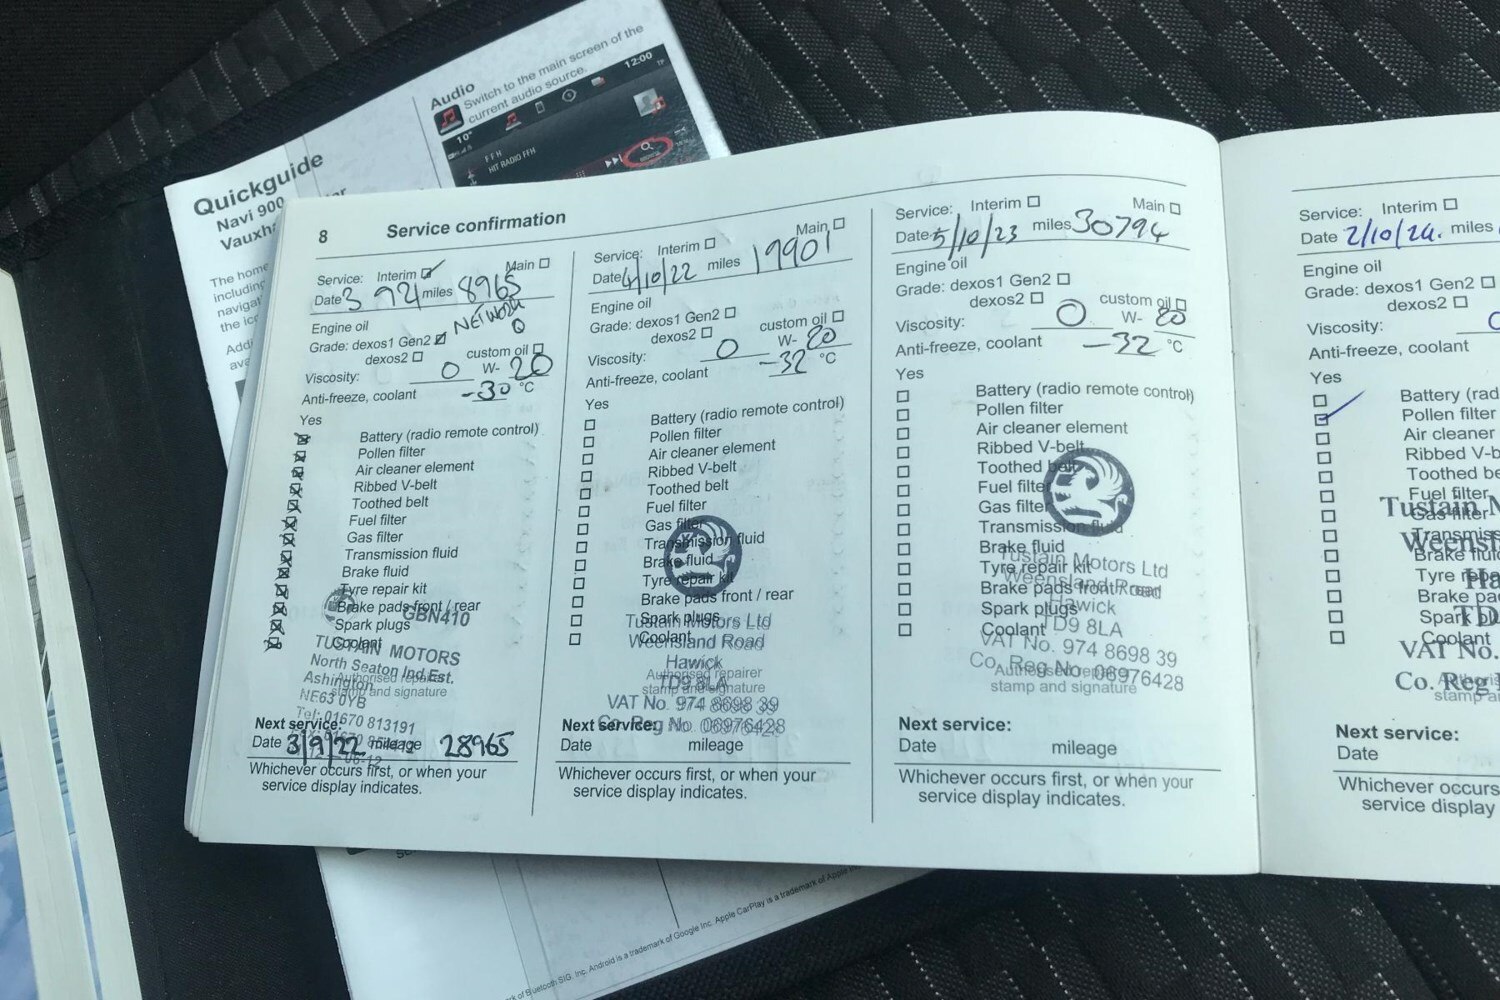 Audio
Switch to the main screen of the
current audio source.
12:00
TP
10°
FFH
HIT RADIO FFH
Quickguide
Navi 900
The home
including
the ico
8 Service confirmation
Service: Interim ☑ Main ☐
Date 3 9 21 miles 8965
Engine oil NETWORK
Grade: dexos1 Gen2 ☑ Q
dexos2 ☐ custom oil ☐
Viscosity: 0 W- 20
Anti-freeze, coolant -30 °C
Yes
Battery (radio remote control)
Pollen filter
Air cleaner element
Ribbed V-belt
Toothed belt
Fuel filter
Gas filter
Transmission fluid
Brake fluid
Tyre repair kit
Brake pads front / rear
GBN410
Spark plugs
Coolant
TUSTAIN MOTORS
North Seaton Ind.Est.
Ashington
NE63 0YB
Authorised repairer
stamp and signature
Tel: 01670 813191
Next service:
Date 3/9/22 mileage 28965
Whichever occurs first, or when your
service display indicates.
Service: Interim ☐ Main ☐
Date 4/10/22 miles 19901
Engine oil
Grade: dexos1 Gen2 ☐
dexos2 ☐ custom oil ☐
Viscosity: 0 W- 20
Anti-freeze, coolant -32 °C
Yes
Battery (radio remote control)
Pollen filter
Air cleaner element
Ribbed V-belt
Toothed belt
Fuel filter
Gas filter
Transmission fluid
Brake fluid
Tyre repair kit
Brake pads front / rear
Spark plugs
Coolant
Tustain Motors Ltd
Weensland Road
Hawick
TD9 8LA
Authorised repairer
stamp and signature
VAT No. 974 8698 39
Co. Reg No. 06976428
Next service:
Date mileage
Whichever occurs first, or when your
service display indicates.
Service: Interim ☐ Main ☐
Date 5/10/23 miles 30794
Engine oil
Grade: dexos1 Gen2 ☐
dexos2 ☐ custom oil ☐
Viscosity: 0 W- 20
Anti-freeze, coolant -32 °C
Yes
Battery (radio remote control)
Pollen filter
Air cleaner element
Ribbed V-belt
Toothed belt
Fuel filter
Gas filter
Transmission fluid
Brake fluid
Tyre repair kit
Brake pads front / rear
Spark plugs
Coolant
Tustain Motors Ltd
Weensland Road
Hawick
TD9 8LA
VAT No. 974 8698 39
Co. Reg No. 06976428
Authorised repairer
stamp and signature
Next service:
Date mileage
Whichever occurs first, or when your
service display indicates.
Service: Interim ☐
Date 2/10/24. miles
Engine oil
Grade: dexos1 Gen2 ☐
dexos2 ☐
Viscosity:
Anti-freeze, coolant
Yes
Battery (rad
Pollen filter
Air cleaner
Ribbed V-be
Toothed be
Fuel filter
Gas filter
Transmiss
Brake fluid
Tyre repa
Brake pa
Spark plu
Coolant
Tustain M
Weensl
Ha
TD
VAT No.
Co. Reg
stamp a
Next service:
Date
Whichever occurs
service display
rk of Bluetooth SIG, Inc. Android is a trademark of Google Inc. Apple CarPlay is a trademark of Apple